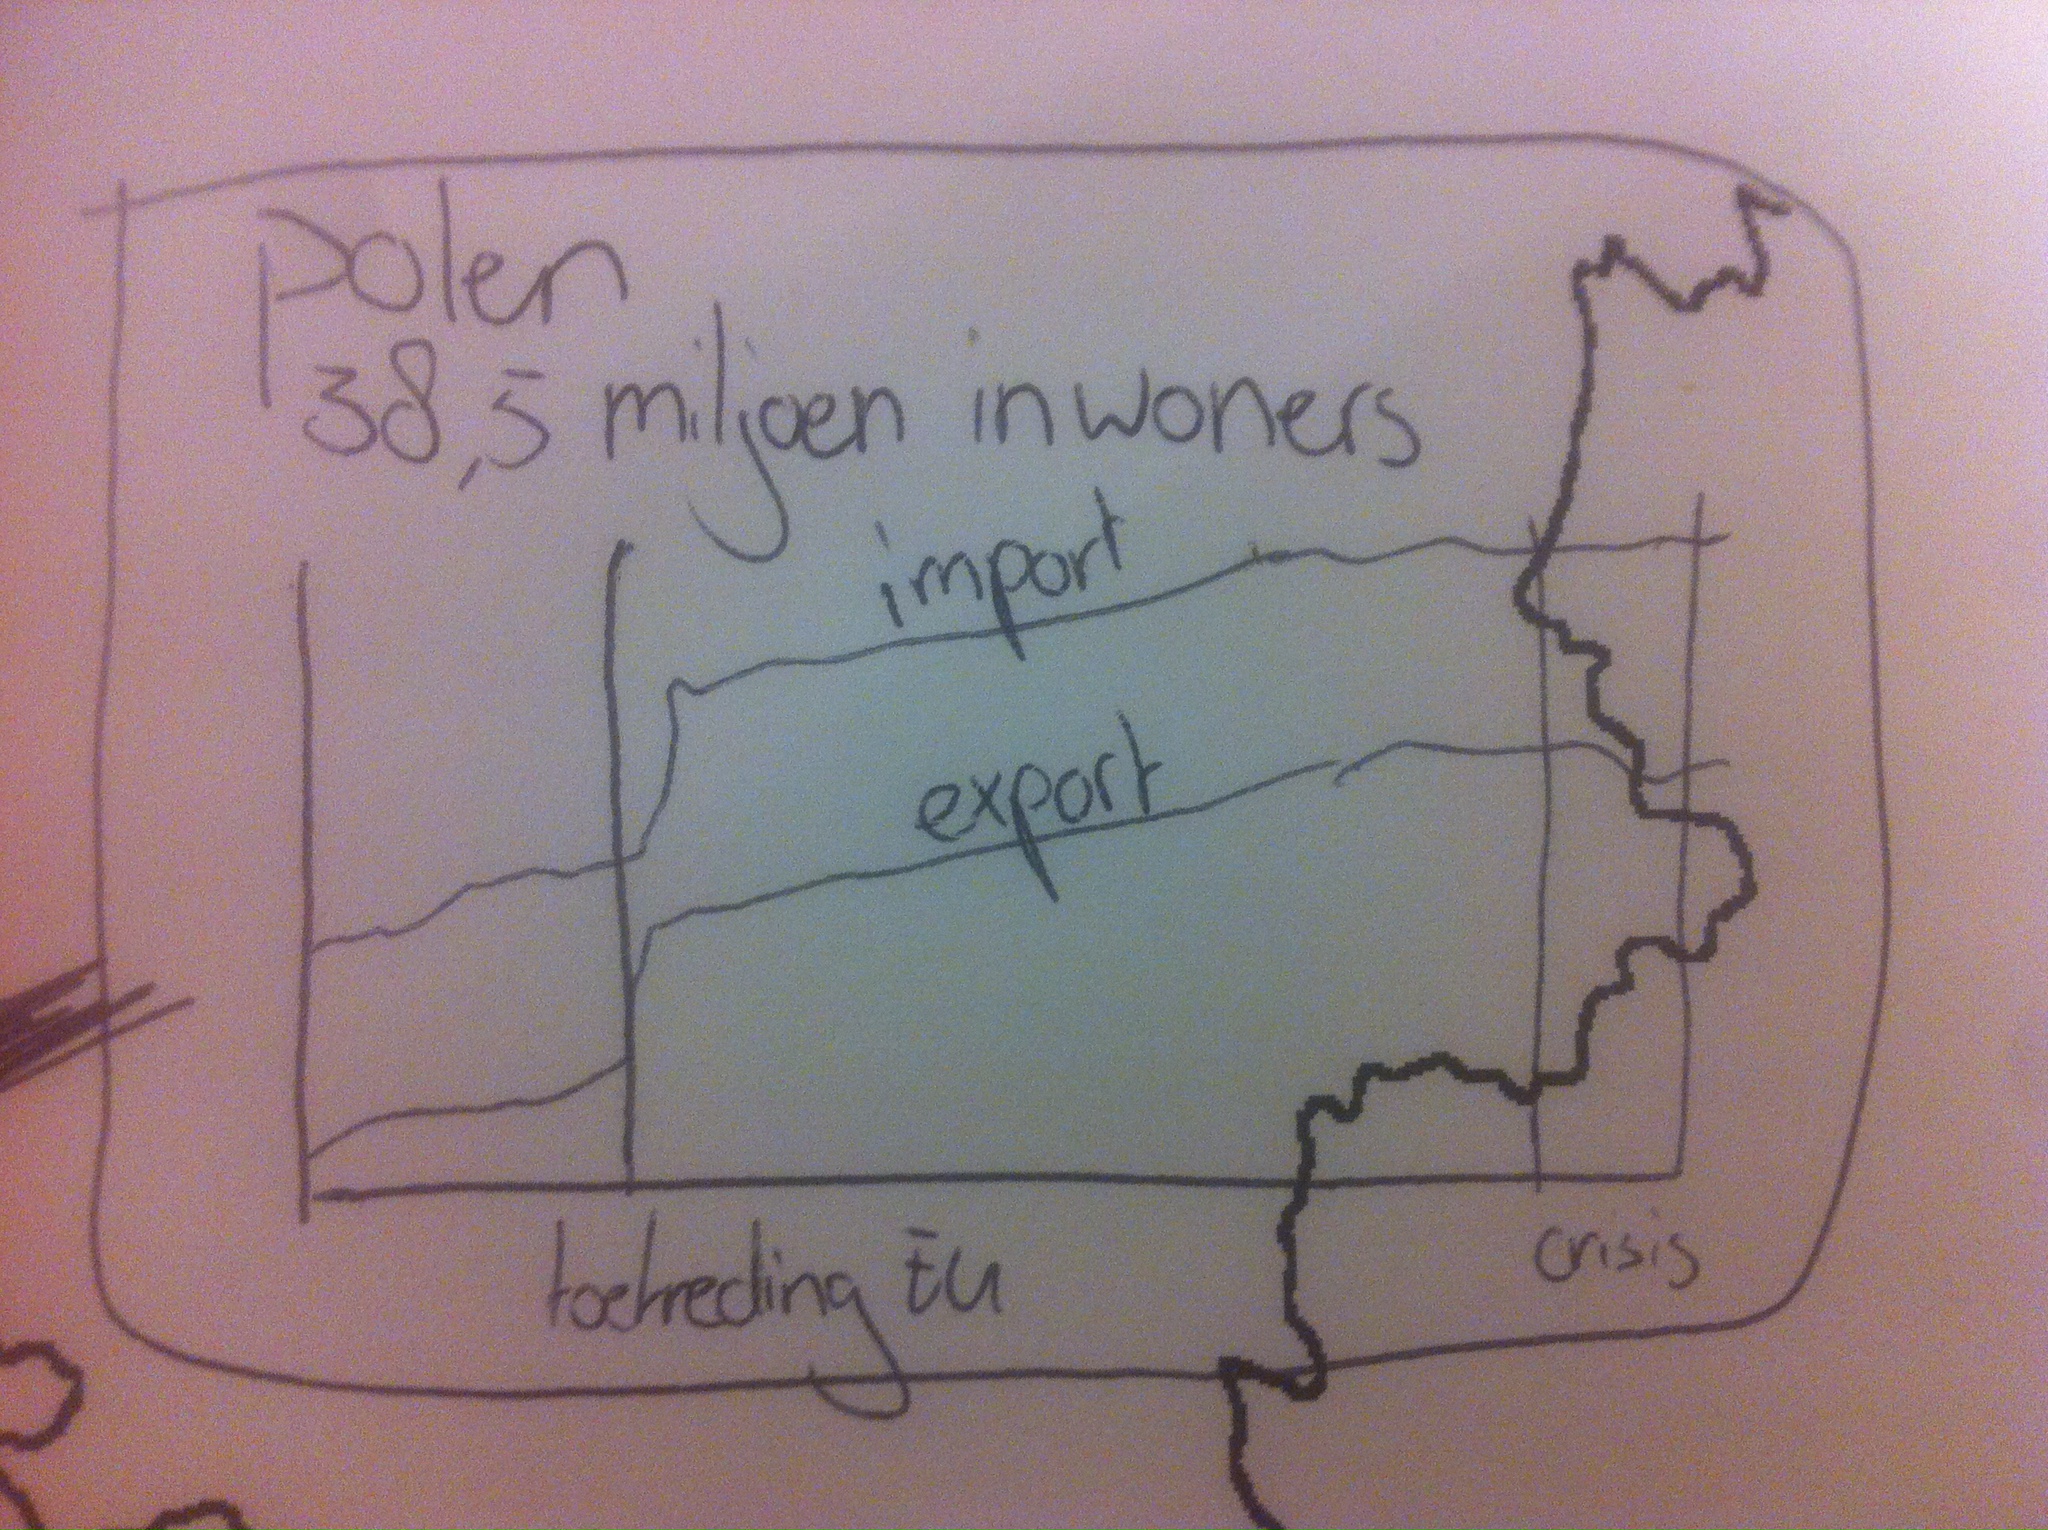 polen
38,5 miljoen inwoners
import
export
toetreding EU
crisis